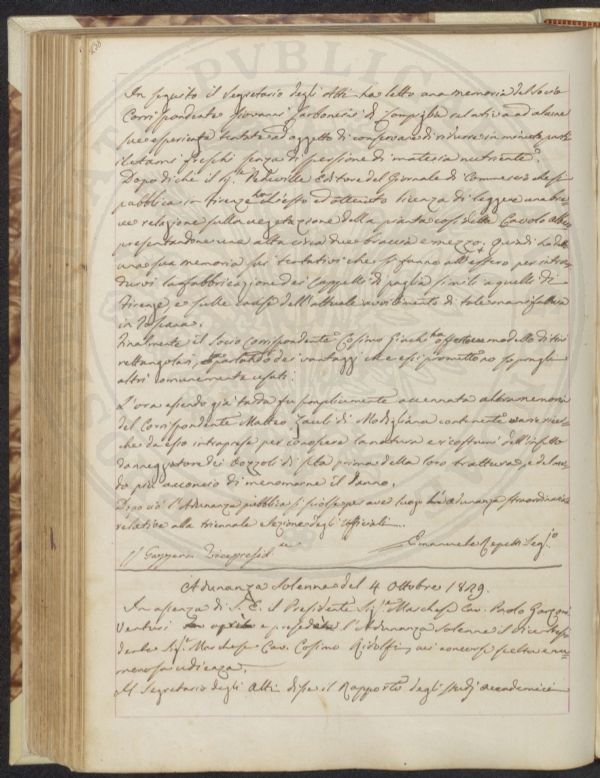 In seguito il Segretario degli Atti ha letto una memoria del Socio
Corrispondente Giovanni relativa ad alcune
sue esperienze tentate ad oggetto di di ridurre in minute parti
i letami freschi senza di materia nutriente.
Dopo di che il Sig.re Editore del Giornale di Commercio che si
pubblica in Firenze chiesto ed ottenuto licenza di leggere una bre
ve relazione sulla vegetazione della pianta così detta Cavolo
presentandone una alta circa due braccia e mezzo. Quindi ha letto
una sua memoria sui tentativi che si fanno all'estero per intro
durvi la fabbricazione dei Cappelli di paglia simili a quelli di
Firenze e sulle cause dell'attuale avvilimento di tale manifattura
in Toscana.
Finalmente il Socio Corrispondente Cosimo un modello di
rettangolari, parlando dei vantaggi che essi promettono sopra gli
altri comunemente usati.
L'ora essendo già tarda fu semplicemente accennata altra memoria
del Corrispondente Matteo Zauli di Modigliana contenente varie ricer
che da esso intraprese per conoscere la natura e i costumi dell'insetto
danneggiatore dei bozzoli di seta prima della loro trattura, e del mo
do più acconcio di menomarne il danno.
Dopo ciò l'Adunanza pubblica si sciolse per aver luogo adunanza straordinaria
relativa alla triennale elezione degli Ufficiali.
Emanuele Repetti Seg.o
Vicepresid.e
Adunanza Solenne del 4 Ottobre 1829.
In assenza di S. E. il Presidente Sig.r Marchese Cav. Paolo Garzoni
Venturi e l'Adunanza solenne il Vicepresi
dente Sig.r Marchese Cav. Cosimo Ridolfi, cui concorse scelta e nu
merosa udienza.
Il Segretario degli Atti disse il Rapporto degli studj accademici